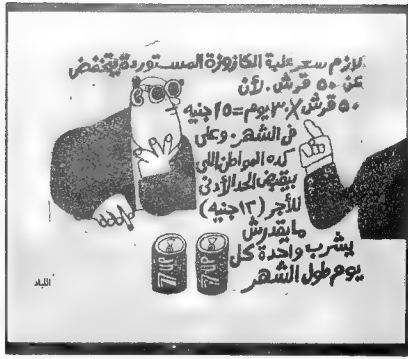 لازم سعر علبة الكازوزة المستوردة يتخفض
عن ٥٠ قرش . لأن
٥٠ قرش × ٣٠ يوم = ١٥ جنيه
فى الشهر . وعلى
كده المواطن اللى
بيقبض الحد الأدنى
للأجر (١٣ جنيه)
مايقدرش
يشرب واحدة كل
يوم طول الشهر
7UP
7UP
اللباد